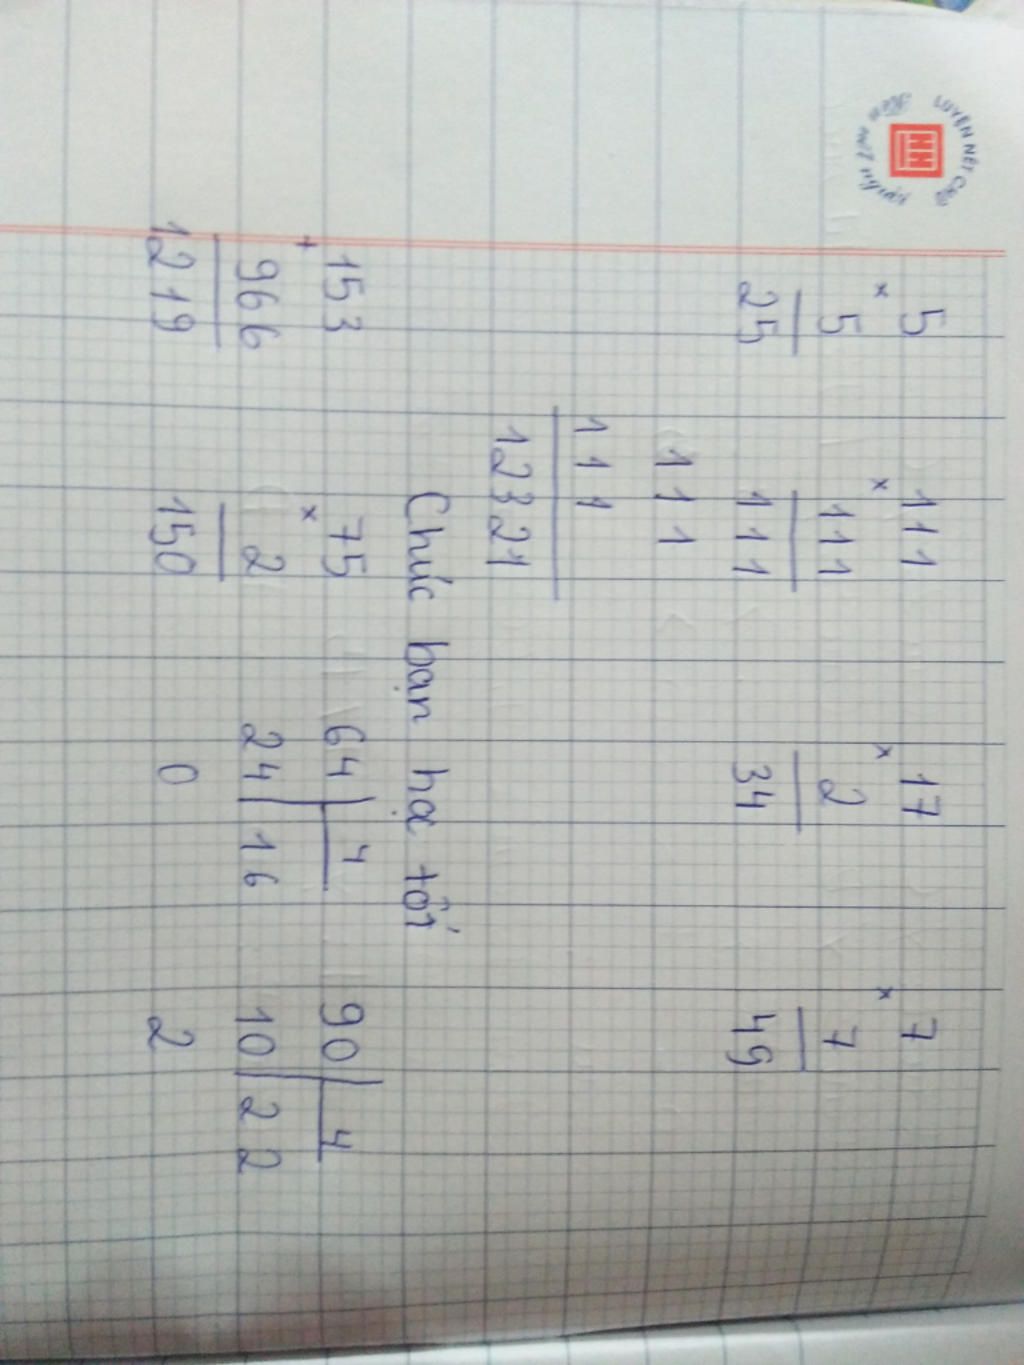 LUYỆN NÉT CHỮ
NH
Rèn nết người
5 111 17 7
× × × ×
5 111 2 7
25 111 34 49
111
111
12321
Chúc bạn học tốt
153 75 64 4 90 4
+ ×
966 2 24 16 10 22
1219 150 0 2